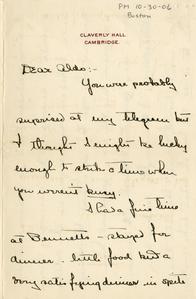 PM 10-30-06
Boston
CLAVERLY HALL
CAMBRIDGE.
Dear Aldo:-
You were probably
surprised at my telegram but
I thought I might be lucky
enough to strike a time when
you weren't busy.
I had a fine time
at Bennetts - stayed for
dinner. little food and a
very satisfying dinner in spite